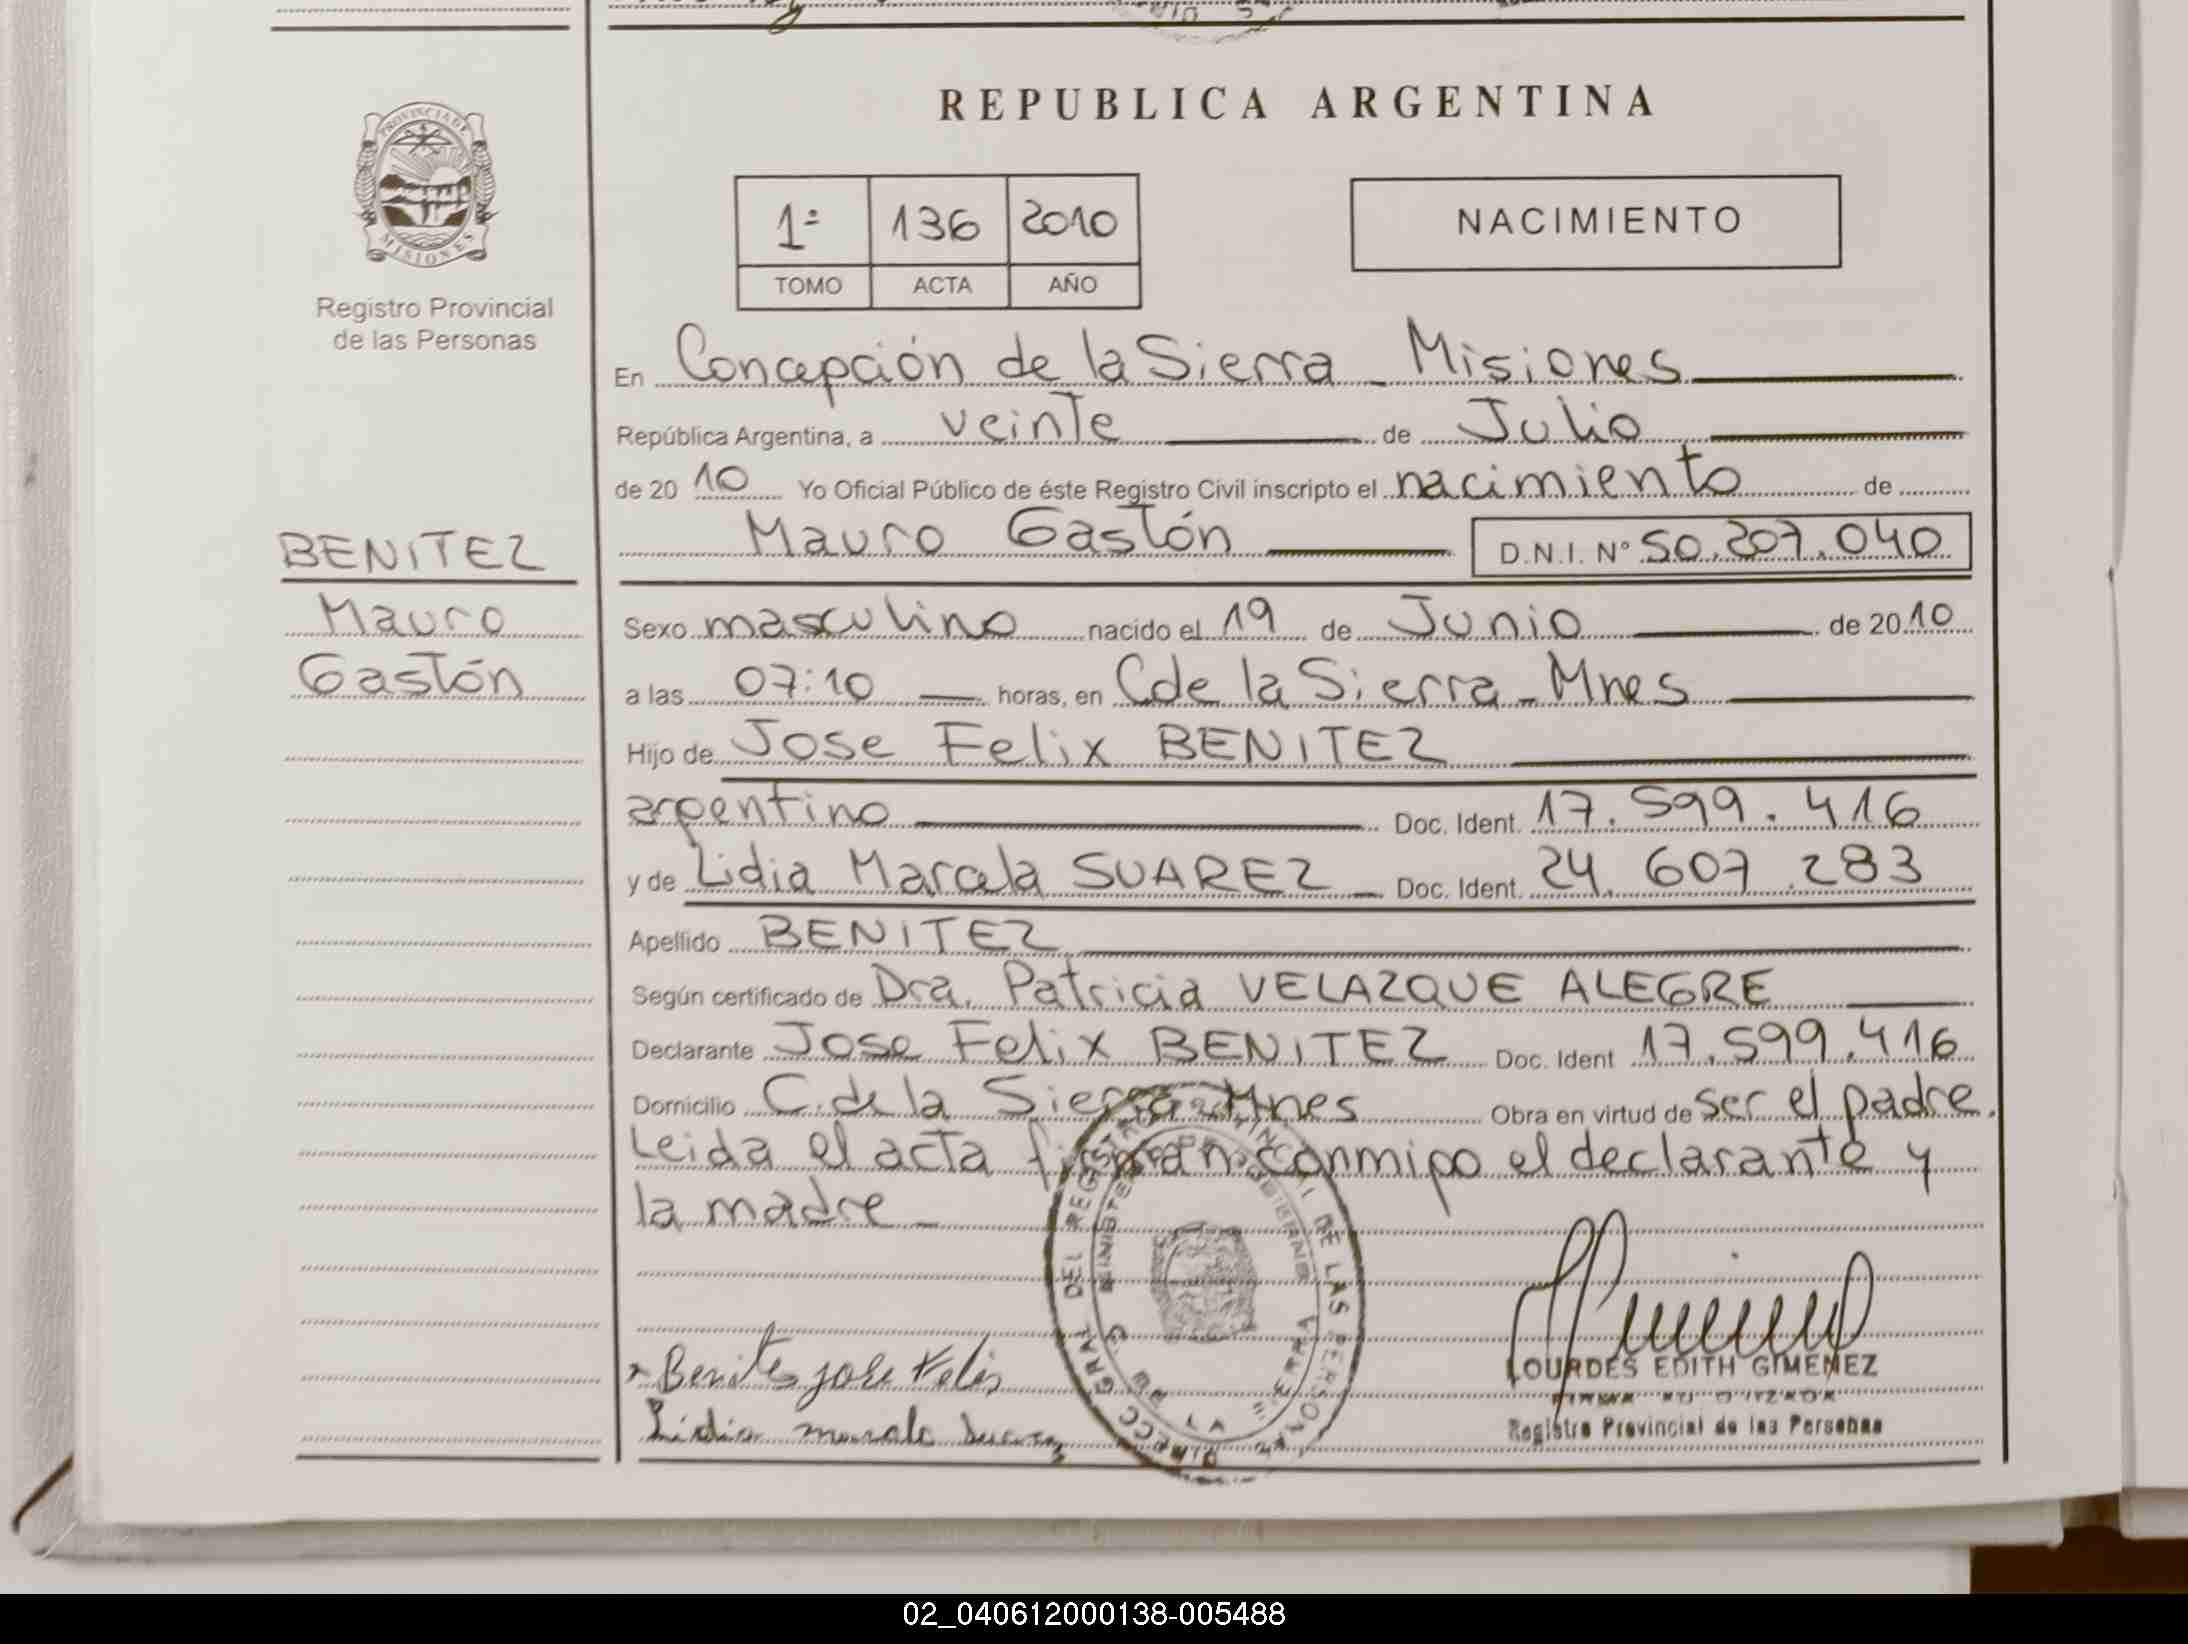 REPUBLICA ARGENTINA
PROVINCIA DE MISIONES
Registro Provincial
de las Personas
1ª 136 2010
TOMO ACTA AÑO
NACIMIENTO
En Concepción de la Sierra - Misiones
República Argentina, a veinte de Julio
de 2010 Yo Oficial Público de éste Registro Civil inscripto el nacimiento de
Mauro Gastón D.N.I. N° 50.207.040
BENITEZ
Mauro
Gastón
Sexo masculino nacido el 19 de Junio de 2010
a las 07:10 horas, en C de la Sierra - Mnes
Hijo de Jose Felix BENITEZ
argentino Doc. Ident. 17.599.416
y de Lidia Marcela SUAREZ - Doc. Ident. 24.607.283
Apellido BENITEZ
Según certificado de Dra. Patricia VELAZQUE ALEGRE
Declarante Jose Felix BENITEZ Doc. Ident 17.599.416
Domicilio C. de la Sierra - Mnes Obra en virtud de ser el padre.
Leida el acta firman conmigo el declarante y
la madre -
Benites jose Felix
Lidia
DIRECC GRAL DEL REGISTRO PROVINCIAL DE LAS PERSONAS
LOURDES EDITH GIMENEZ
Registro Provincial de las Personas
02_040612000138-005488